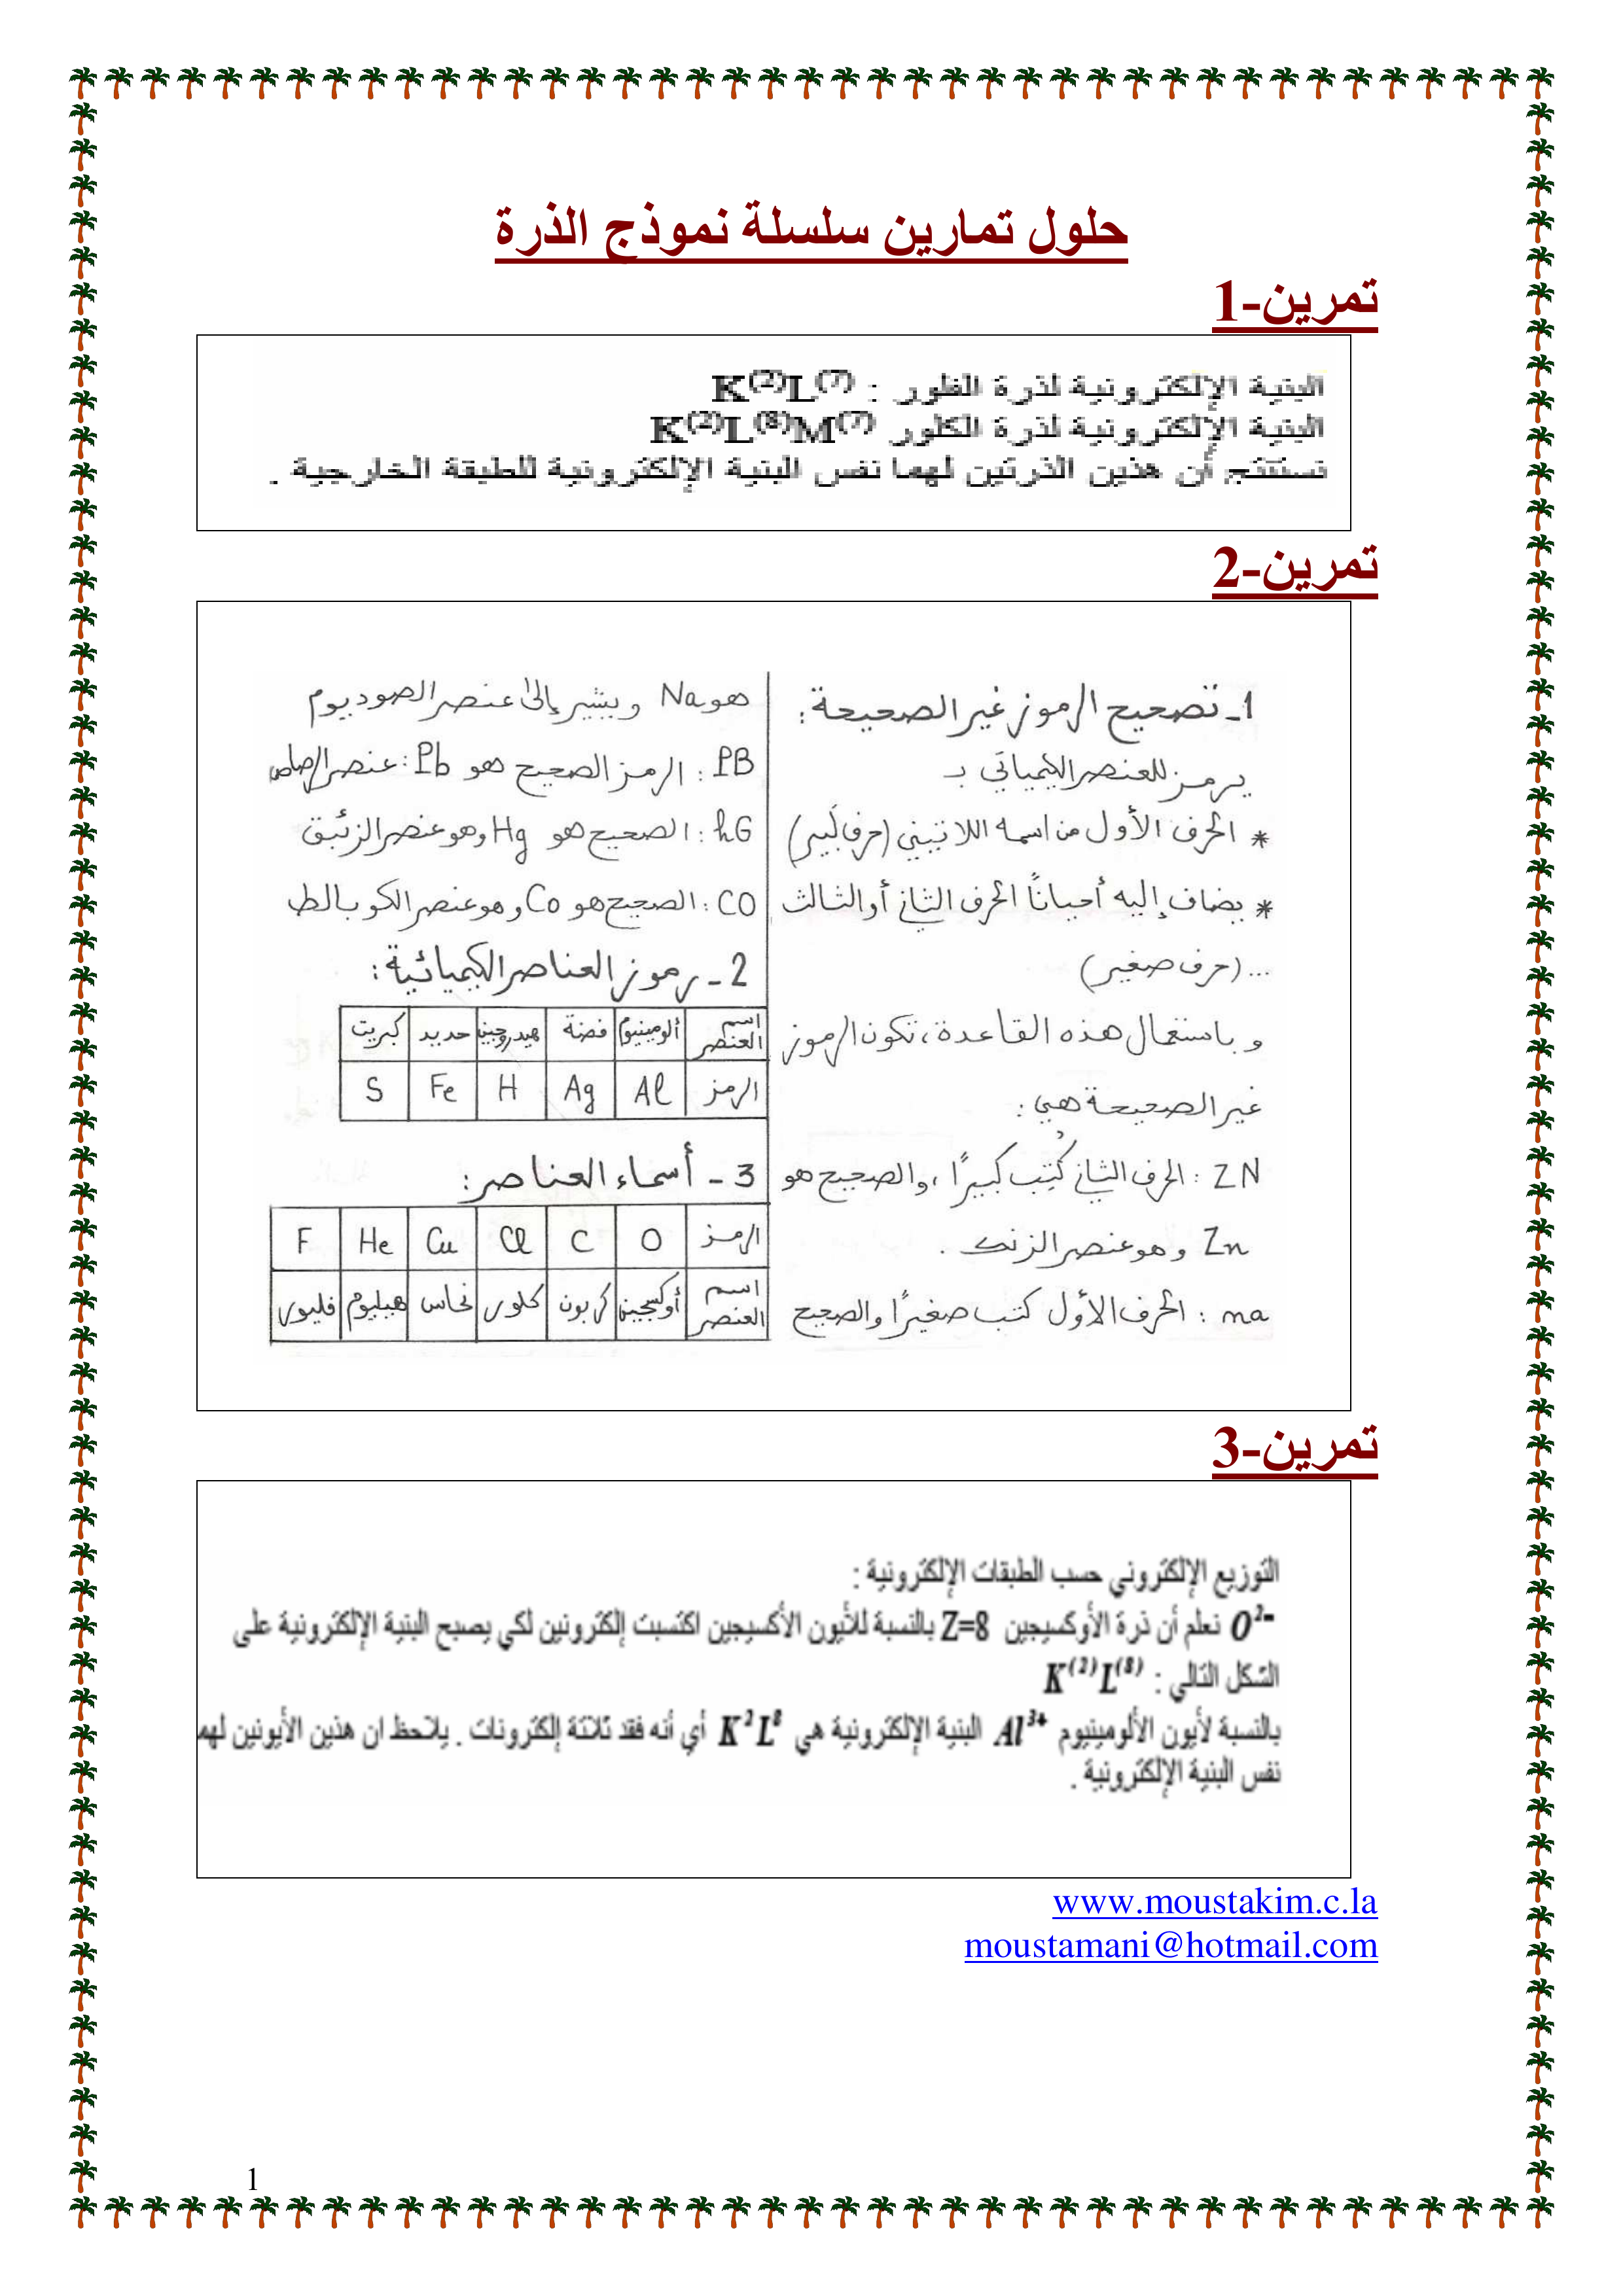 حلول تمارين سلسلة نموذج الذرة
تمرين-1
البنية الإلكترونية لذرة الفلور : K(2)L(7)
البنية الإلكترونية لذرة الكلور K(2)L(8)M(7)
نستنتج أن هذين الذرتين لهما نفس البنية الإلكترونية للطبقة الخارجية .
تمرين-2
1- تصحيح الرموز غير الصحيحة :
يرمز للعنصر الكيميائي بـ
* الحرف الأول من اسمه اللاتيني (حرف كبير)
* يضاف إليه أحياناً الحرف الثاني أو الثالث
... (حرف صغير)
و باستغلال هذه القاعدة، تكون الرموز
غير الصحيحة هي :
ZN : الحرف الثاني كُتب كبيرًا ، والصحيح هو
Zn وهو عنصر الزنك .
ma : الحرف الأول كتب صغيرًا والصحيح
هو Na ويشير إلى عنصر الصوديوم
PB : الرمز الصحيح هو Pb : عنصر الرصاص
hG : الصحيح هو Hg وهو عنصر الزئبق
CO : الصحيح هو Co وهو عنصر الكوبالط
2 - رموز العناصر الكيميائية :
اسم العنصر ألومينيوم فضة هيدروجين حديد كبريت
الرمز Al Ag H Fe S
3 - أسماء العناصر :
الرمز O C Cl Cu He F
اسم العنصر أوكسجين كربون كلور نحاس هيليوم فليور
تمرين-3
التوزيع الإلكتروني حسب الطبقات الإلكترونية :
O2- نعلم أن ذرة الأوكسيجين Z=8 بالنسبة للأيون الأكسيجين اكتسبت إلكترونين لكي يصبح البنية الإلكترونية على
الشكل التالي : K(2)L(8)
بالنسبة لأيون الألومينيوم Al3+ البنية الإلكترونية هي K2L8 أي أنه فقد ثلاثة إلكترونات . يلاحظ ان هذين الأيونين لهم
نفس البنية الإلكترونية .
www.moustakim.c.la
moustamani@hotmail.com
1